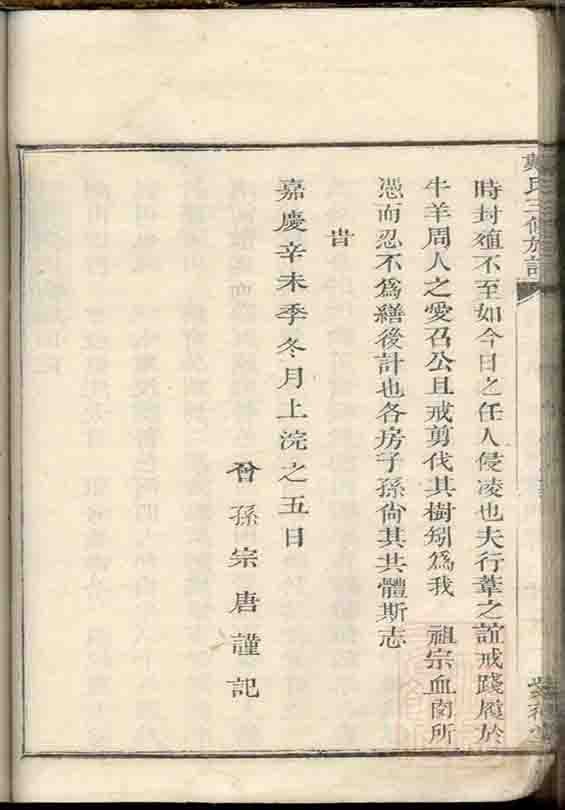 時封殖不至如今日之任人侵凌也夫行葦之誼戒踐履於
牛羊周人之愛召公且戒剪伐其樹矧爲我 祖宗血食所
憑而忍不爲繕後計也各房子孫尙其共體斯志
昔
嘉慶辛未季冬月上浣之五日
曾孫宗唐謹記